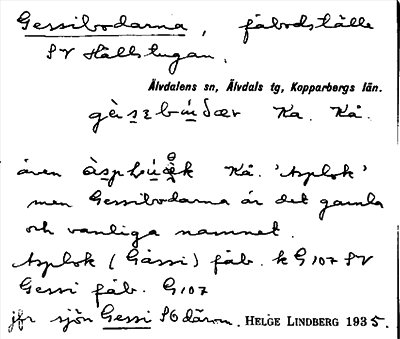 Gessibodarna, fäbodställe
SV Hållstugan.
Älvdalens sn, Älvdals tg, Kopparbergs län.
Ka. Kå.
även Kå. 'Asplok'
men Gessibodarna är det gamla
och vanliga namnet.
Asplok (Gässi) fäb. k G107 SV
Gessi fäb. G107
jfr sjön Gessi SÖ därom. HELGE LINDBERG 1935.